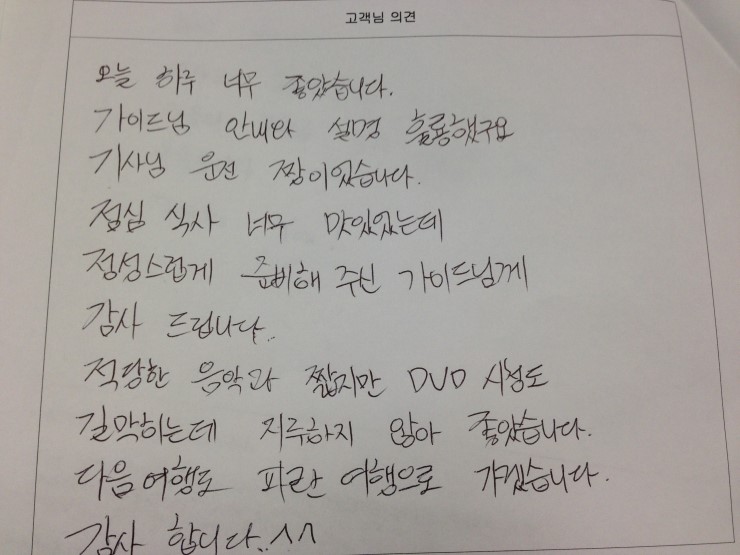 고객님 의견
오늘 하루 너무 좋았습니다.
가이드님 안내와 설명 훌륭했구요
기사님 운전 짱이었습니다.
점심 식사 너무 맛있었는데
정성스럽게 준비해 주신 가이드님께
감사 드립니다..
적당한 음악과 짧지만 DVD 시청도
길막히는데 지루하지 않아 좋았습니다.
다음여행도 파란 여행으로 가겠습니다.
감사 합니다..^^